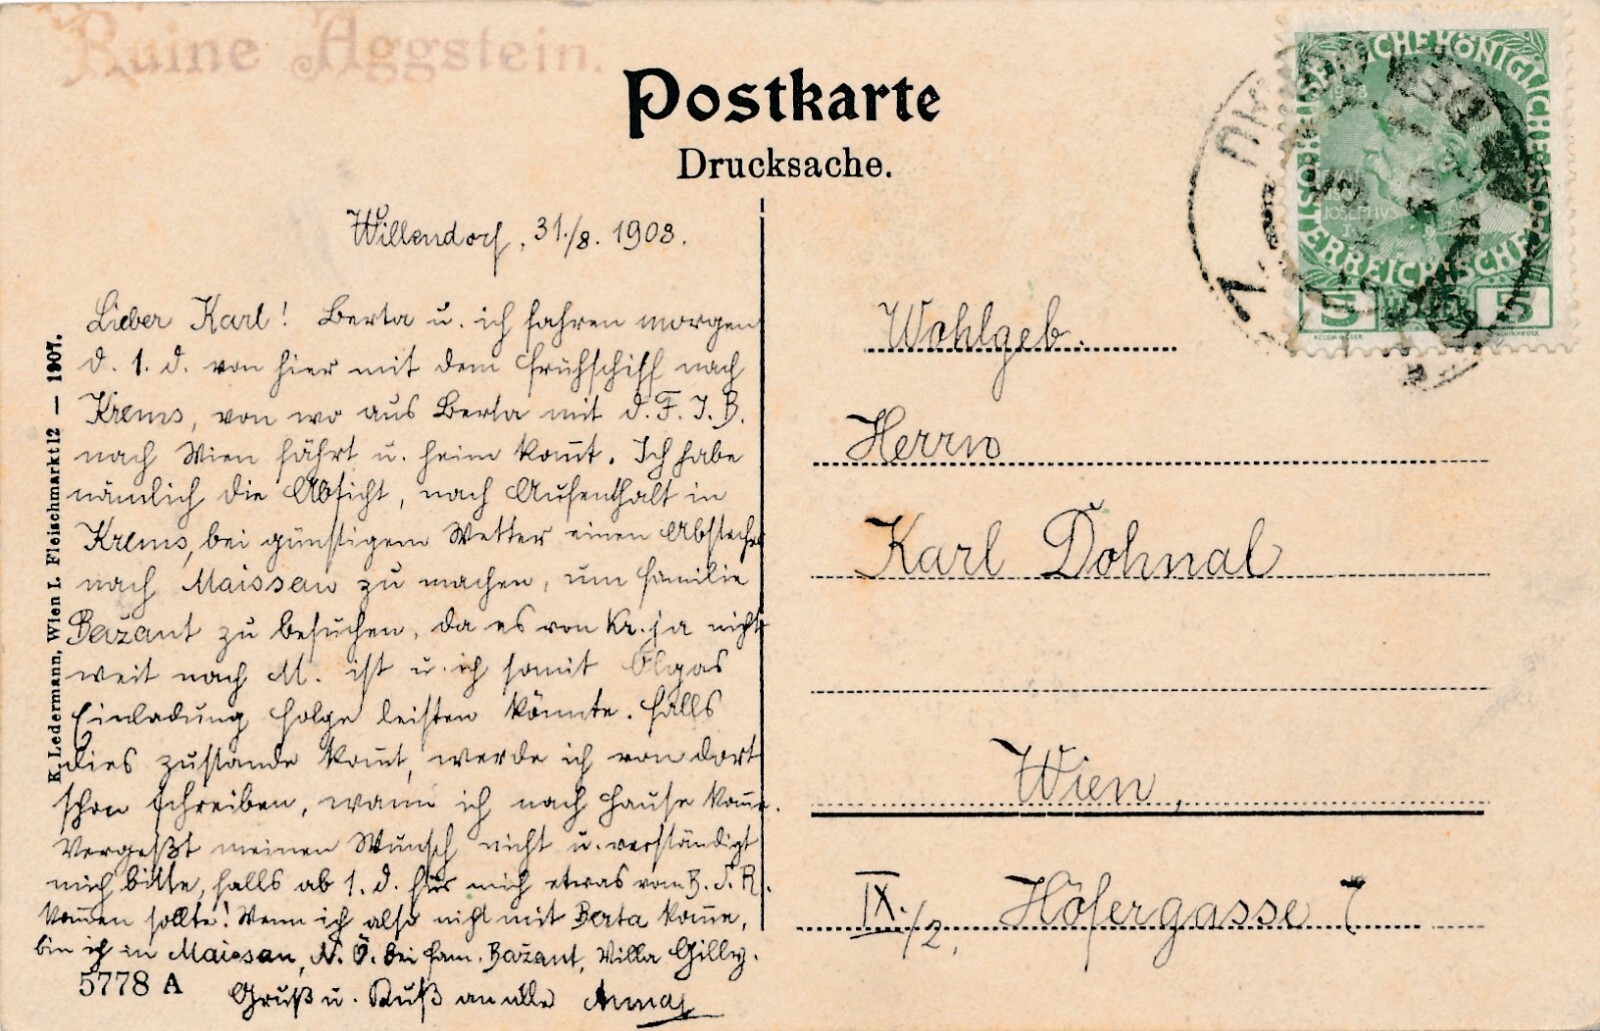 Ruine Aggstein.
Postkarte
Drucksache.
Willendorf, 31./8. 1908.
Lieber Karl! Berta u. ich fahren morgen
d. 1. d. von hier mit dem Frühschiff nach
Krems, von wo aus Berta mit d. F. J. B.
nach Wien fährt u. heim kom̅t. Ich habe
nämlich die Absicht, nach Aufenthalt in
Krems, bei günstigem Wetter einen Abstecher
nach Maissau zu machen, um Familie
Bažant zu besuchen, da es von Kr. ja nicht
weit nach M. ist u. ich somit Olgas
Einladung Folge leisten könnte. Falls
dies zustande kom̅t, werde ich von dort
schon schreiben, wann ich nach Hause kom̅e.
Vergeßt meinen Wunsch nicht u. verständigt
mich bitte, falls ab 1. d. für mich etwas vom B. S. R.
kom̅en sollte! Wenn ich also nicht mit Berta kom̅e,
bin ich in Maissau, N. Ö. bei Fam. Bažant, Villa Gilly.
Gruß u. Kuß an alle Anna
5778 A
K. Ledermann, Wien I. Fleischmarkt 12 — 1907.
KAISERLICHE KÖNIGLICHE ÖSTERREICHISCHE
1908
JOSEPHVS
5 5
Wohlgeb.
Herrn
Karl Dohnal
Wien,
IX./2, Höfergasse 7